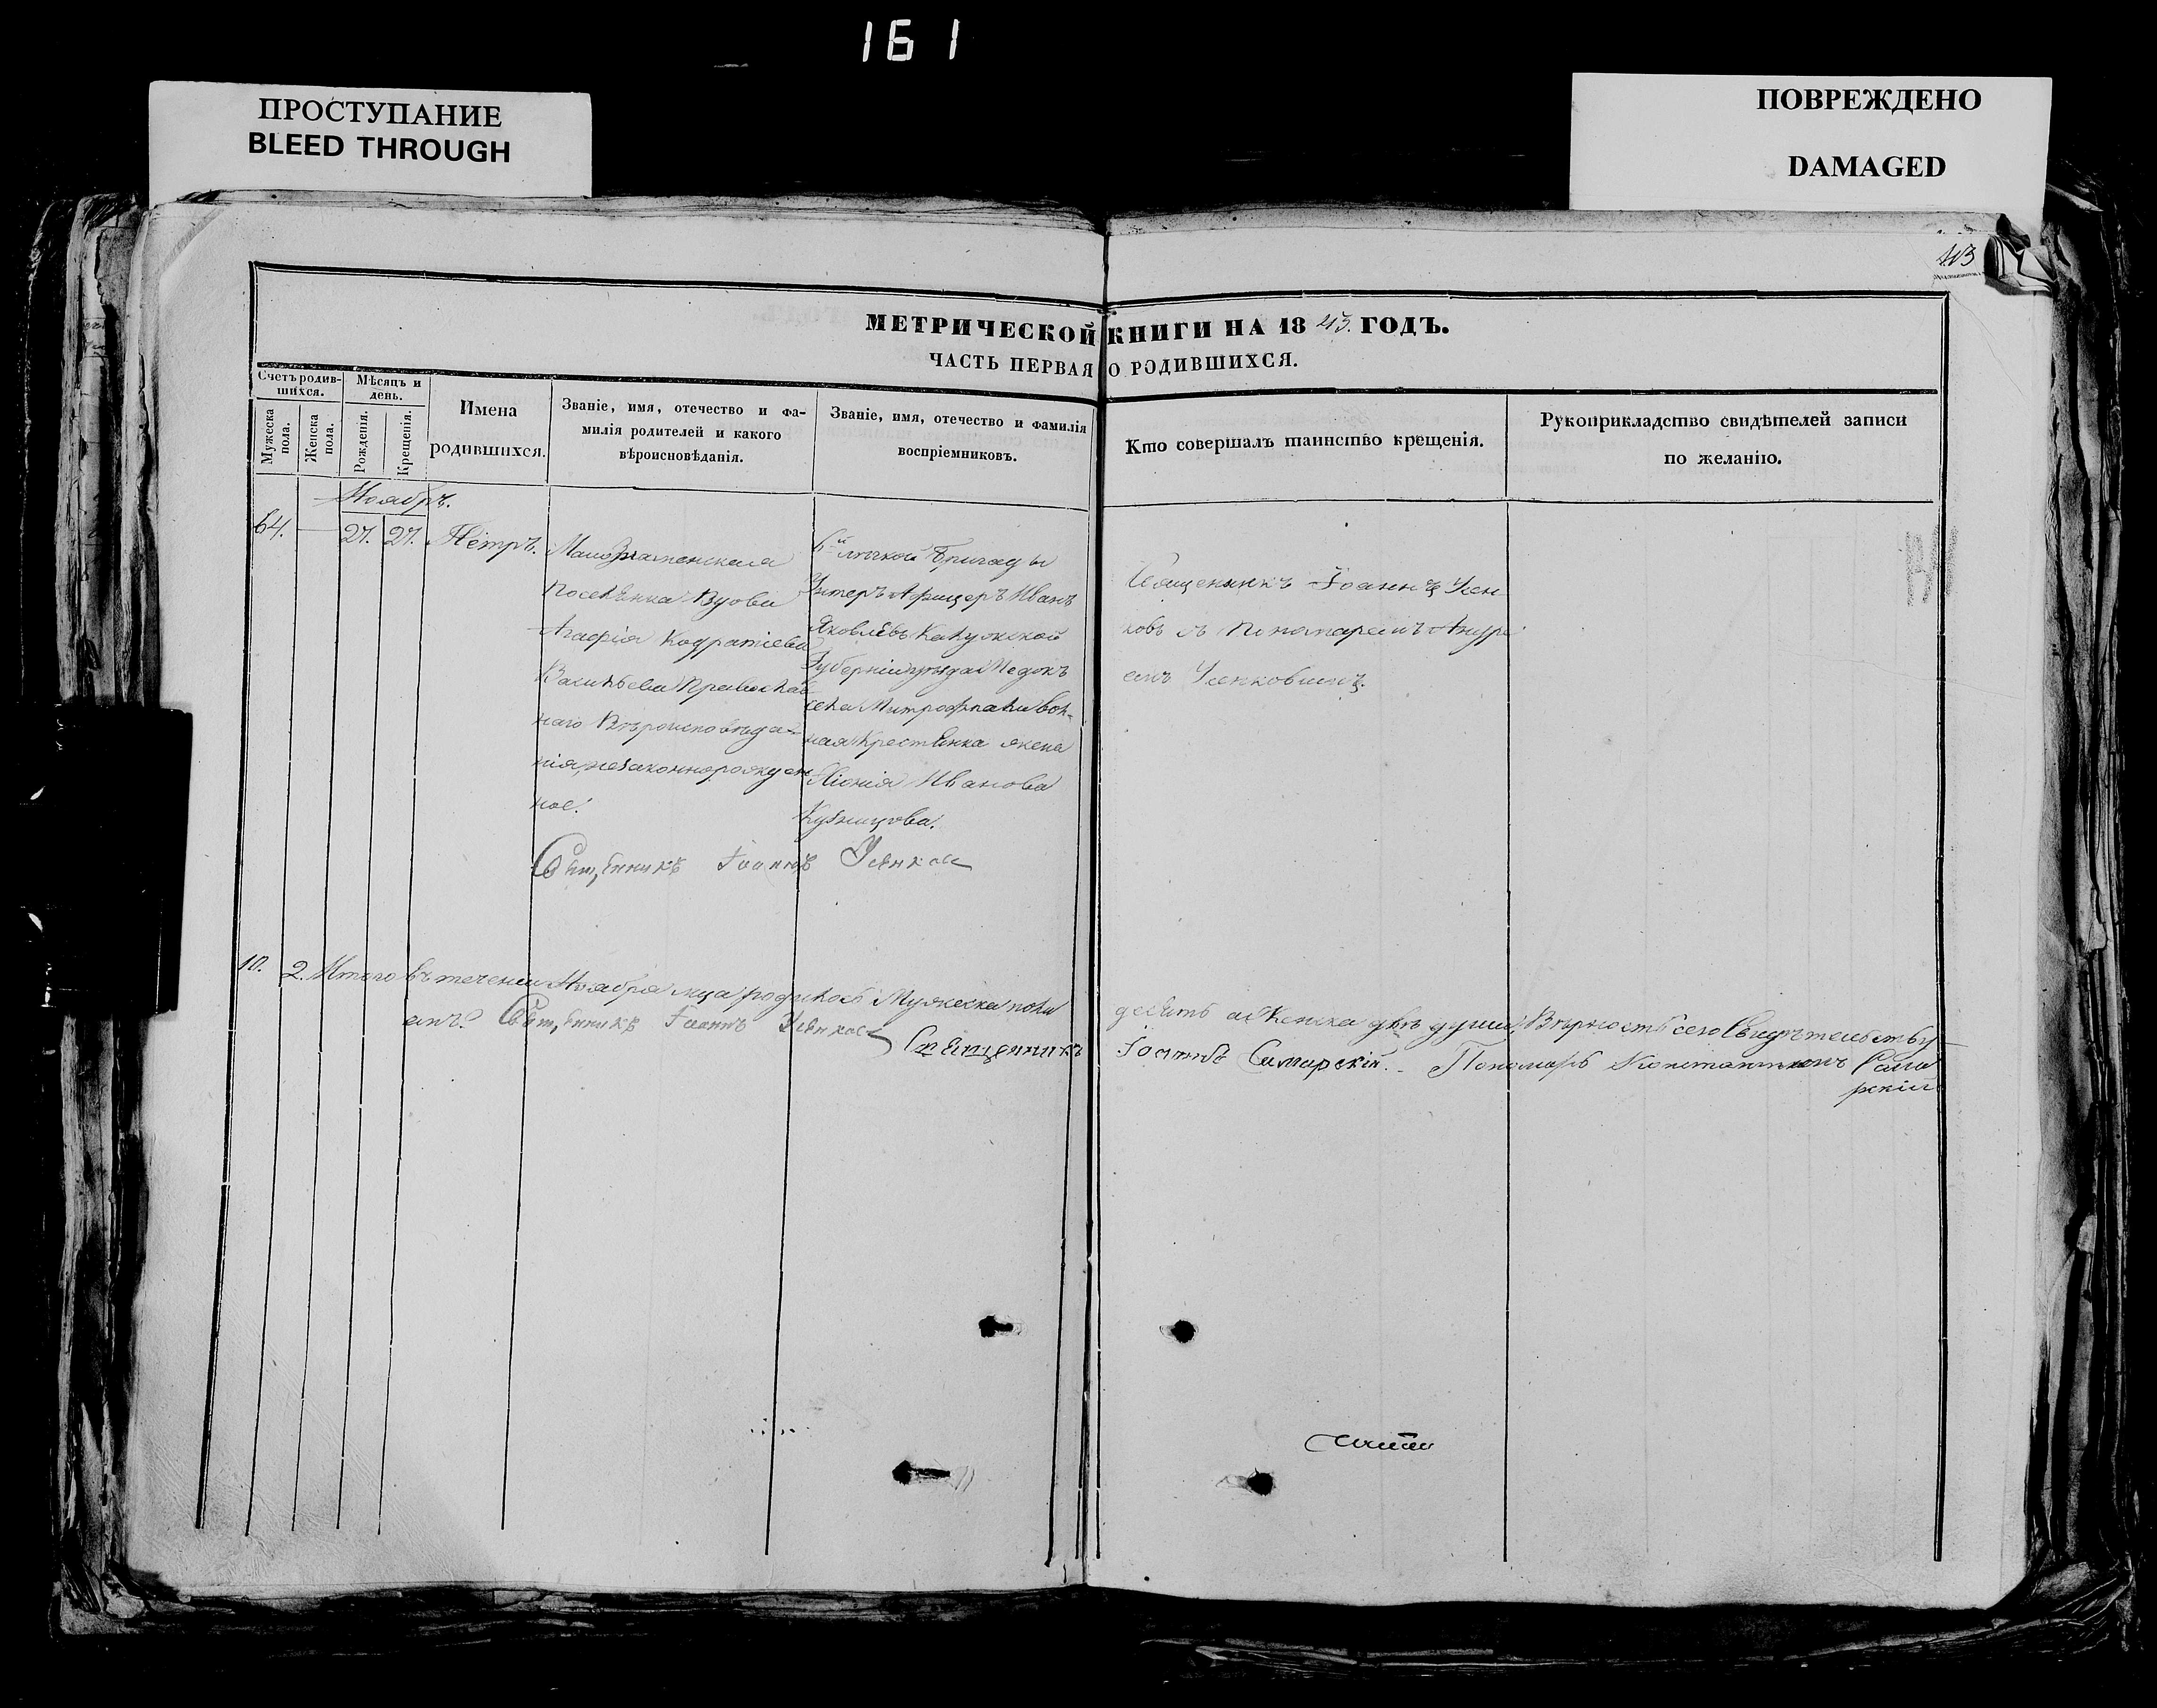 161
ПРОСТУПАНИЕ
BLEED THROUGH
ПОВРЕЖДЕНО
DAMAGED
МЕТРИЧЕСКОЙ КНИГИ НА 1843. ГОДЪ.
ЧАСТЬ ПЕРВАЯ О РОДИВШИХСЯ.
Счетъ родив-
шихся.
Мужеска
пола.
Женска
пола.
Мѣсяцъ и
день.
Рожденія.
Крещенія.
Имена
родившихся.
Званіе, имя, отечество и фа-
милія родителей и какого
вѣроисновѣданія.
Званіе, имя, отечество и фамилія
воспріемниковъ.
Кто совершалъ таинство крещенія.
Рукоприкладство свидѣтелей записи
по желанію.
Ноябрь.
64.
27. 27. Петръ.
Малознаменская
Поселянка Вдова
Агафія Кодратіева
Васильева Православ
наго Вѣроисповѣда-
нія, незаконнорожден
ное.
6й бригады
Унтеръ Афицеръ Иванъ
Яковлевъ Калужской
Губерніи уѣзда
села вол-
ная Крестянка жена
Иванова
Кузницова.
Священникъ Іоаннъ Усен
ковъ съ Пономаремъ Андре
емъ Усенковымъ.
Священникъ Іоаннъ Усенковъ
10. 2. Итого въ теченіи Ноября мца родилось Мужеска пола
десять а Женска двѣ души, Вѣрность сего Свидѣтельству-
емъ. Священникъ Іоаннъ Усенковъ Священникъ
Іоаннъ Самарскій. Пономарь Константинъ Сама
рскій